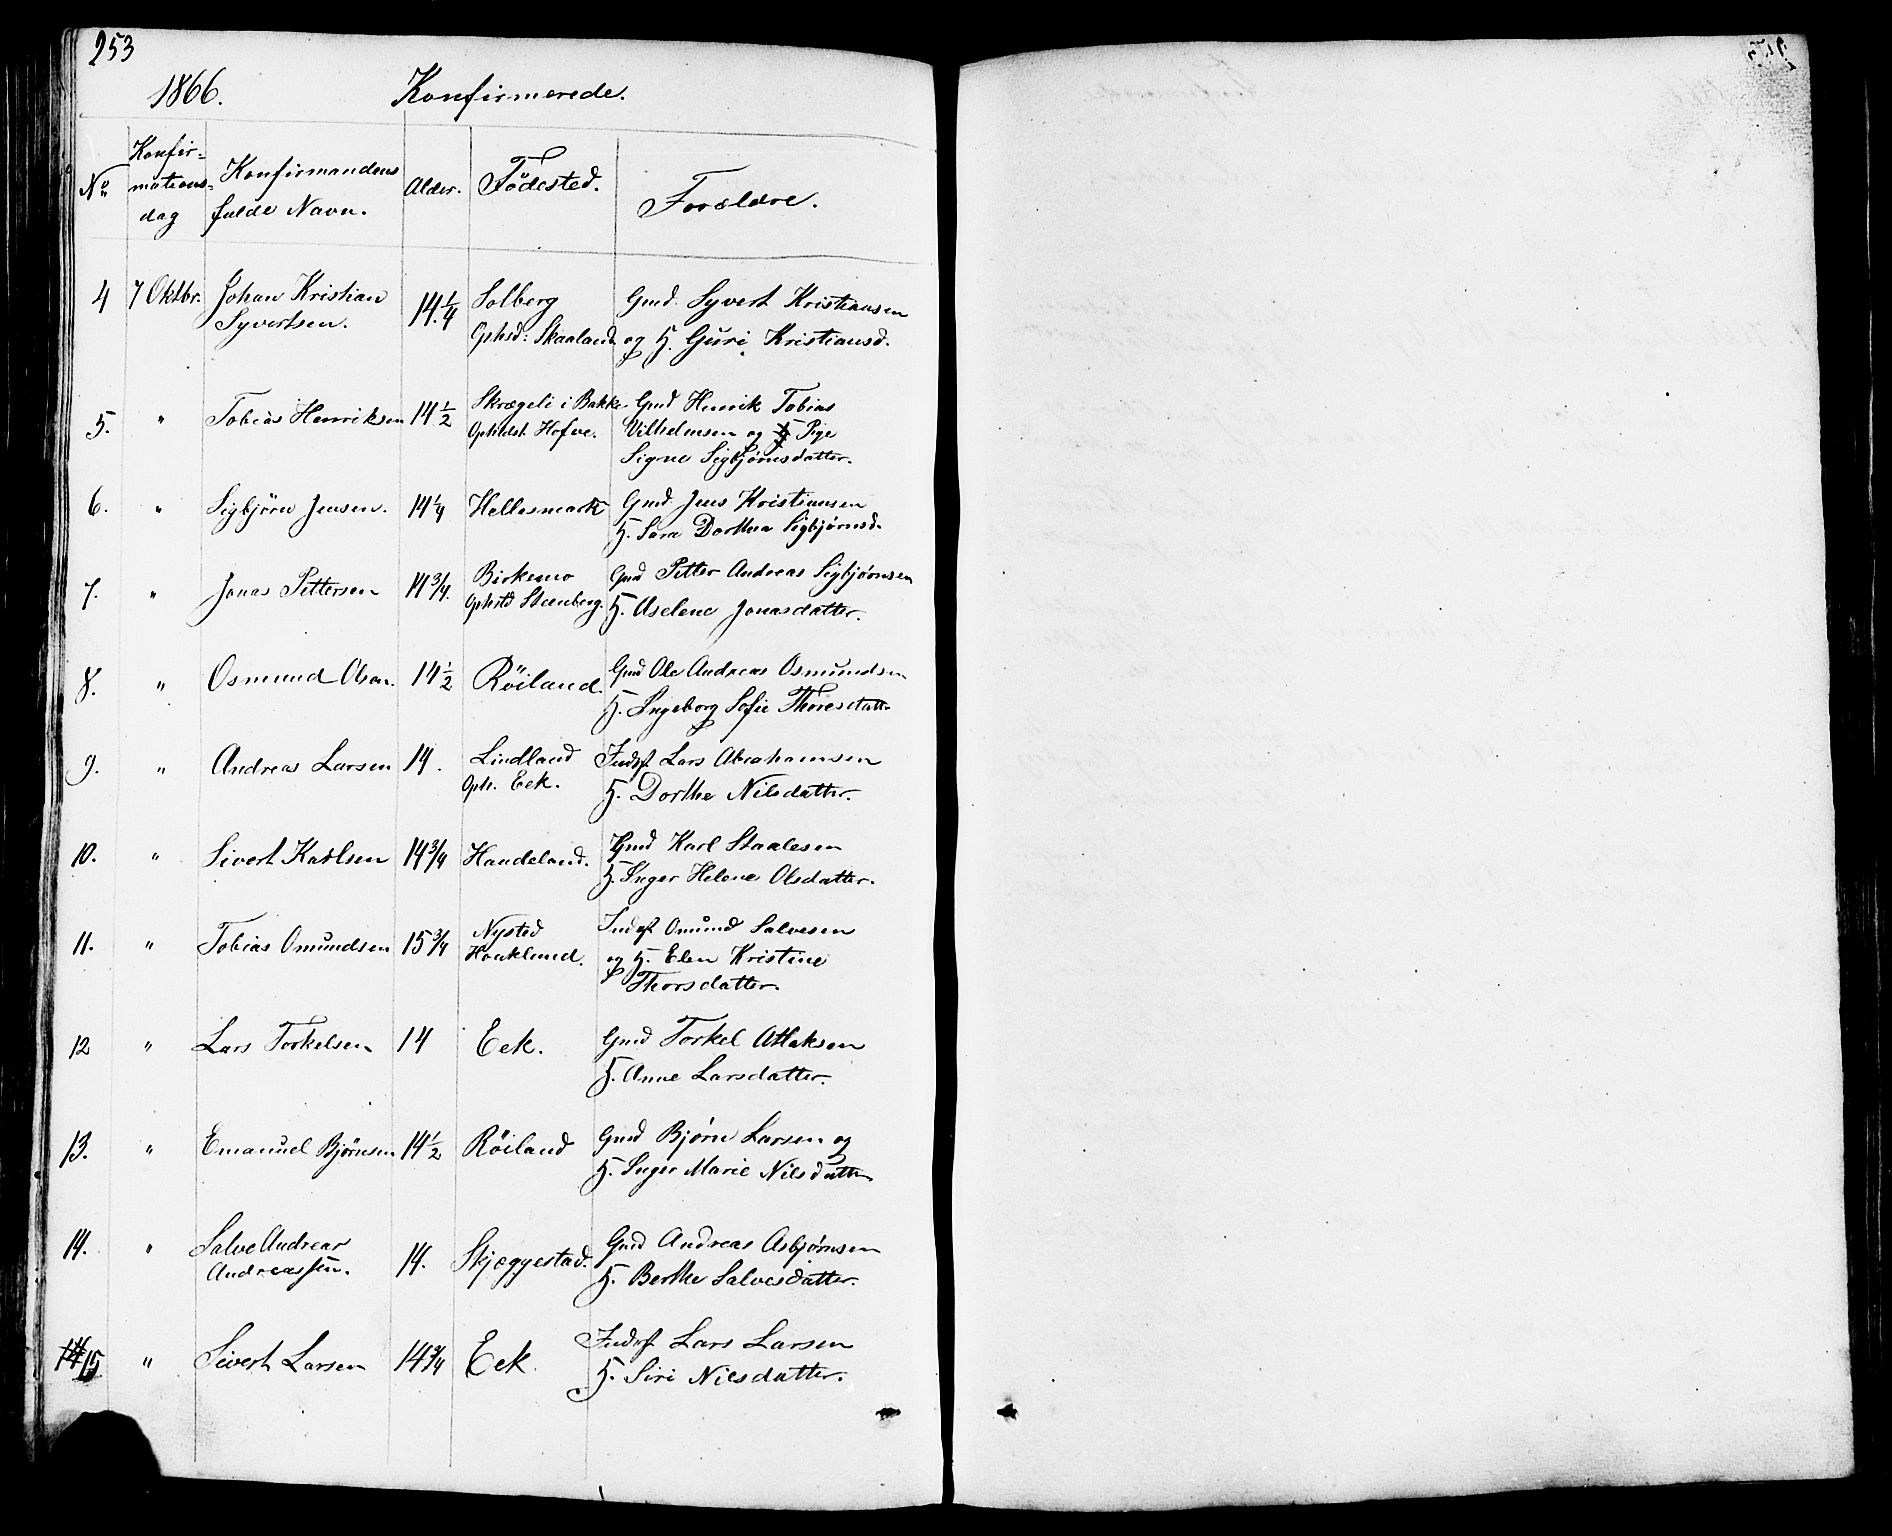 253
1866. Konfirmerede.
No Konfir=mations=dag Konfirmandens fulde Navn. Alder. Födested. Forældre.
4 7 Oktbr. Johan Kristian Syvertsen. 14 1/4 Solberg Ophsd: Skaaland Gmd. Syvert Kristiansen og H. Guri Kristiansd.
5. " Tobias Henriksen 14 1/2 Skrægeli i Bakke Opholdst. Hofve. Gmd Henrik Tobias Vilhelmsen og Pige Signe Sigbjørnsdatter.
6. " Sigbjörn Jensen. 14 1/4 Hellesmark Gmd. Jens Kristiansen H. Sara Dorthea Sigbjørnsd.
7. " Jonas Pettersen 14 3/4. Birkemo Ophstd Steenberg. Gmd Petter Andreas Sigbjørnsen H. Aselene Jonasdatter.
8. " Osmund Olsen. 14 1/2 Röiland. Gmd Ole Andreas Osmundsen H. Ingeborg Sofie Thoresdatt.
9. " Andreas Larsen 14. Lindland Oph. Eek. Inderst Lars Abrahamsen H. Dorthe Nilsdatter.
10. " Sivert Karlsen 14 3/4 Haudeland. Gmd Karl Staalesen H. Inger Helene Olsdatter.
11. " Tobias Omundsen 15 3/4 Nysted Houklund. Inderst Omund Salvesen og H. Elen Kristine Thorsdatter.
12 " Lars Torkelsen 14 Eek. Gmd Torkel Atlaksen H. Anne Larsdatter.
13. " Emanuel Bjørnsen 14 1/2 Röiland Gmd Bjørn Larsen og H. Inger Marie Nilsdatter
14. " Salve Andreas Andreassen. 14. Skjeggestad. Gmd Andreas Asbjørnsen H. Berthe Salvesdatter.
15 " Sivert Larsen 14 3/4 Eek. Inderst Lars Larsen H. Siri Nilsdatter.